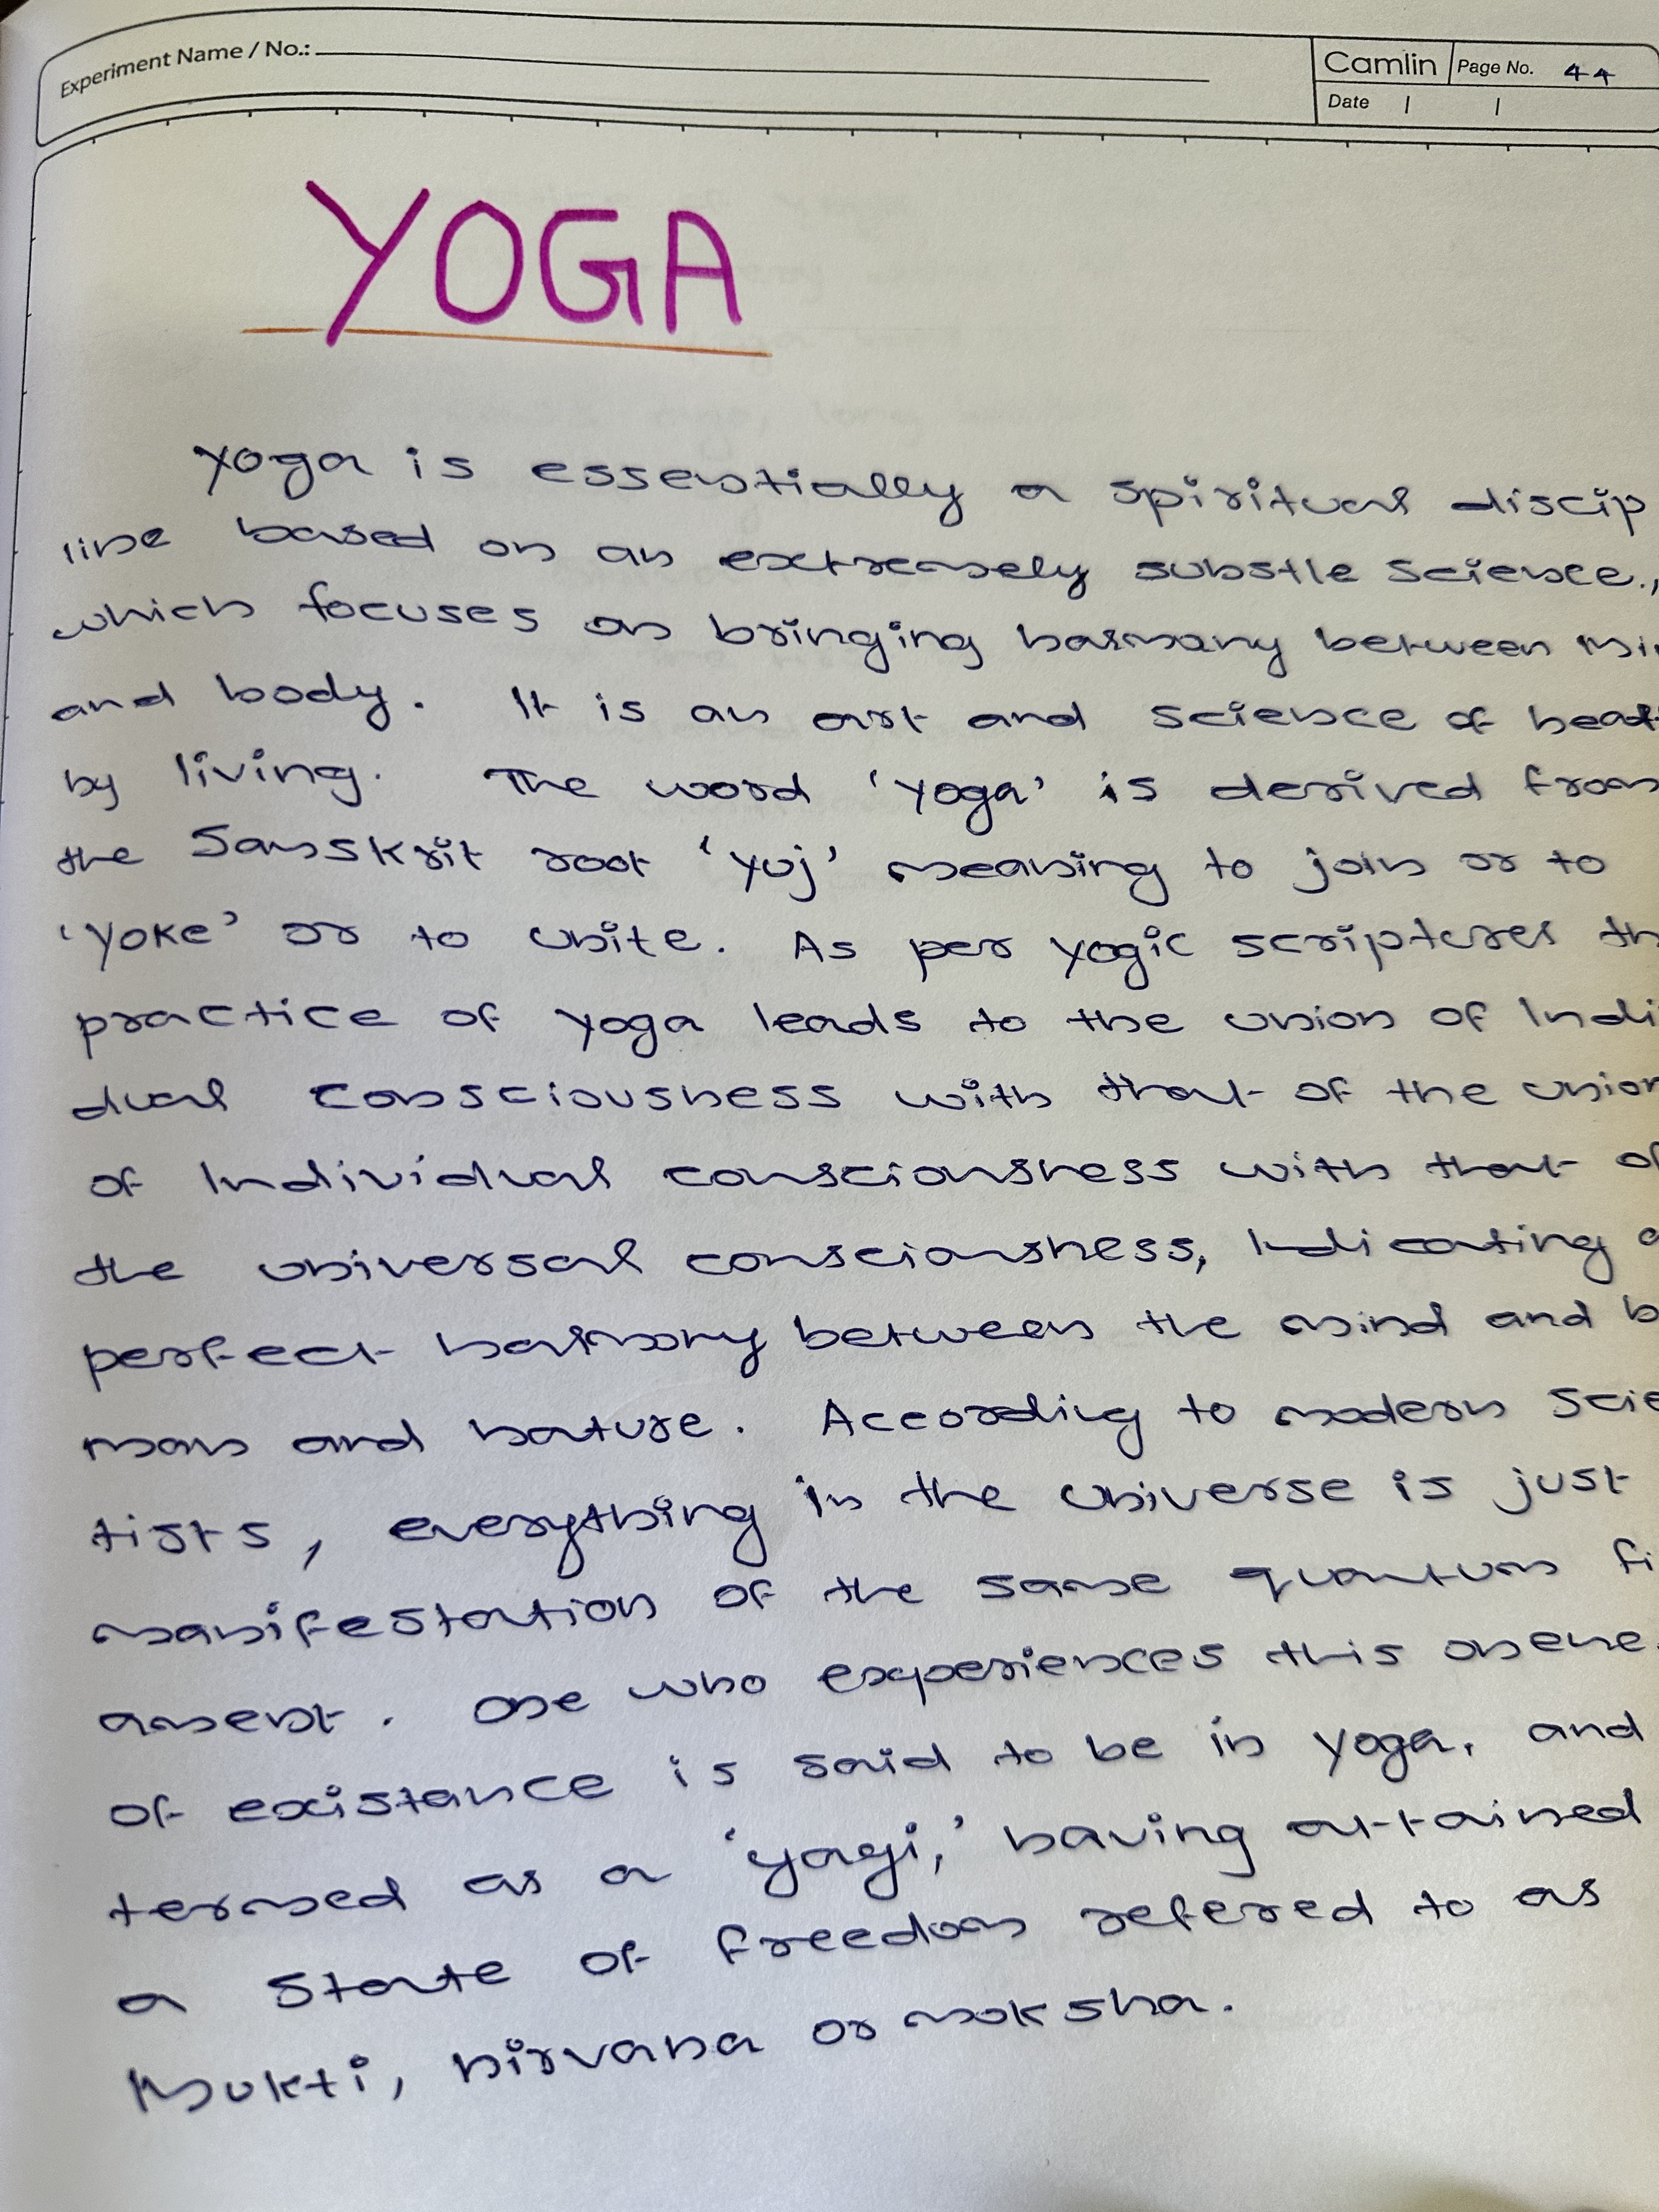 Experiment Name / No.:
Camlin
Page No. 44
Date / /
YOGA
Yoga is essentially a spiritual discip
line based on an extremely substle science.,
which focuses on bringing harmany between mi
and body. It is an art and science of healt
by living. The word 'yoga' is derived from
the Sanskrit root 'yuj' meaning to join or to
'yoke' or to unite. As per yogic scriptures th
practice of yoga leads to the union of Indi
dual consciousness with that of the union
of Individual consciousness with that of
the universal consciousness, Indicating a
perfect harmony between the mind and b
man and nature. According to modern scie
tists, everything in the universe is just
manifestation of the same quantum fi
ament. One who experiences this onene
of existance is said to be in yoga, and
termed as a 'yogi,' having attained
a state of freedom refered to as
Mukti, nirvana or moksha.